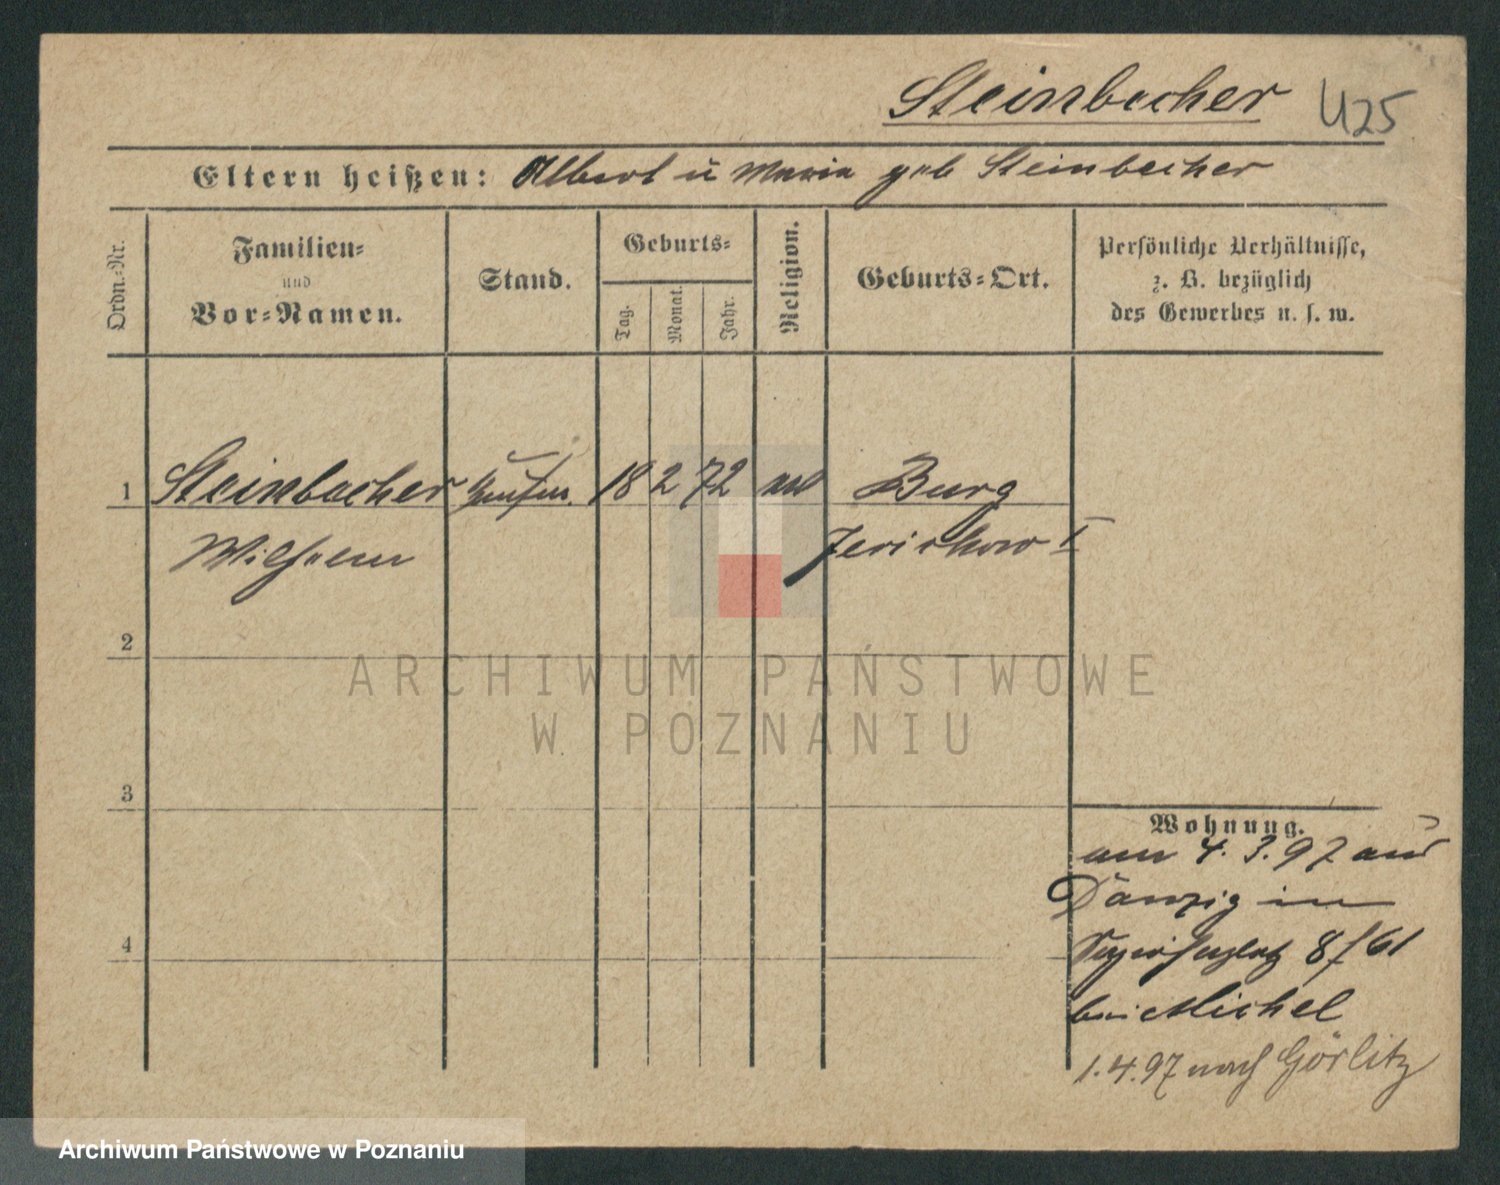 Steinbacher 425
Eltern heißen: Albert u Maria geb Steinbacher
Ordn.-Nr.
Familien-
und
Vor-Namen.
Stand.
Geburts-
Tag.
Monat.
Jahr.
Religion.
Geburts-Ort.
Persönliche Verhältnisse,
z. B. bezüglich
des Gewerbes u. s. w.
1 Steinbacher 18 2 72 Burg
Wilhelm Jerichow I
2
3
4
Wohnung.
am 4. 3. 97 aus
Danzig in
8/61
bei Michel
1. 4. 97 nach Görlitz
ARCHIWUM PAŃSTWOWE
W POZNANIU
Archiwum Państwowe w Poznaniu